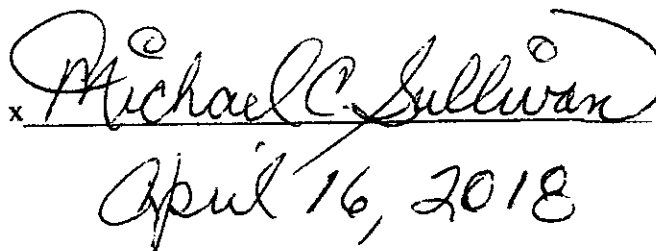 x Michael C. Sullivan
April 16, 2018